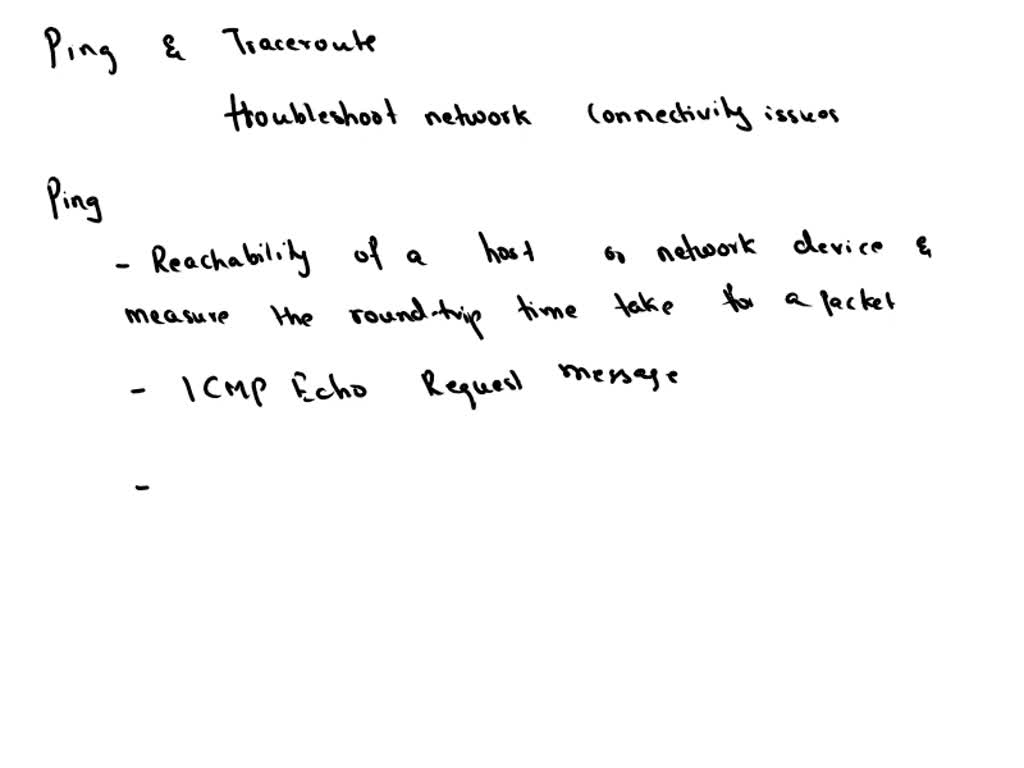 Ping & Traceroute
troubleshoot network connectivity issues
Ping
- Reachability of a host or network device &
measure the round-trip time take for a packet
- ICMP Echo Request message
-